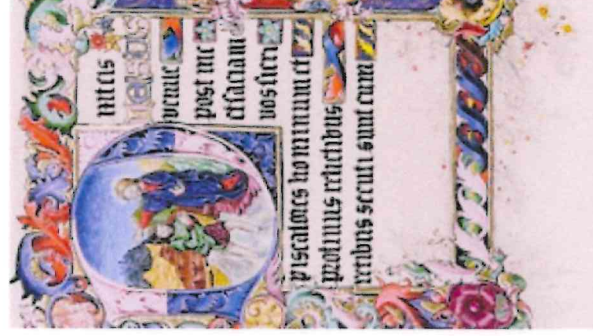 venite
post me
et faciam
vos fieri
piscatores hominum et
protinus relictibus
retibus secuti sunt eum